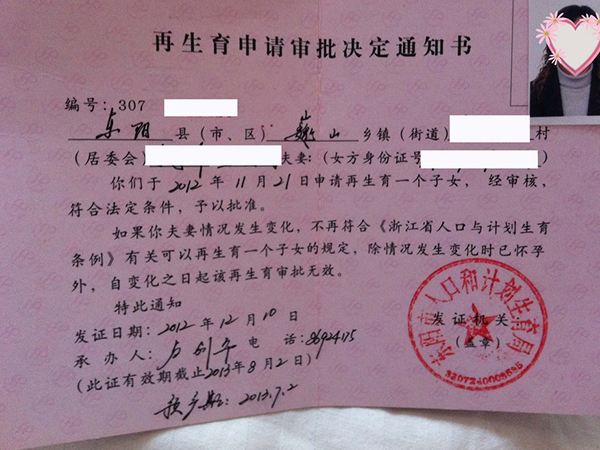 再生育申请审批决定通知书
编号:307
东阳县(市、区)巍山乡镇(街道)村
(居委会)夫妻:(女方身份证号)
你们于2012年11月21日申请再生育一个子女,经审核,
符合法定条件,予以批准。
如果你夫妻情况发生变化,不再符合《浙江省人口与计划生育
条例》有关可以再生育一个子女的规定,除情况发生变化时已怀孕
外,自变化之日起该再生育审批无效。
特此通知
发证日期:2012年12月10日
发证机关
承办人: 电话:
(盖章)
(此证有效期截止2013年8月2日)
预产期:2013.7.2
东阳市人口和计划生育局